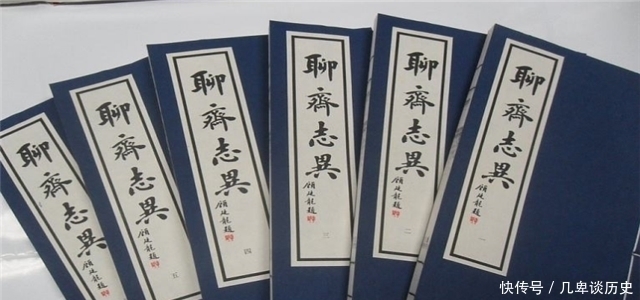 聊齋志異
顧廷龍題
聊齋志異
顧廷龍題
五
聊齋志異
顧廷龍題
四
聊齋志異
顧廷龍題
三
聊齋志異
顧廷龍題
二
聊齋志異
顧廷龍題
一
快传号 / 几卑谈历史